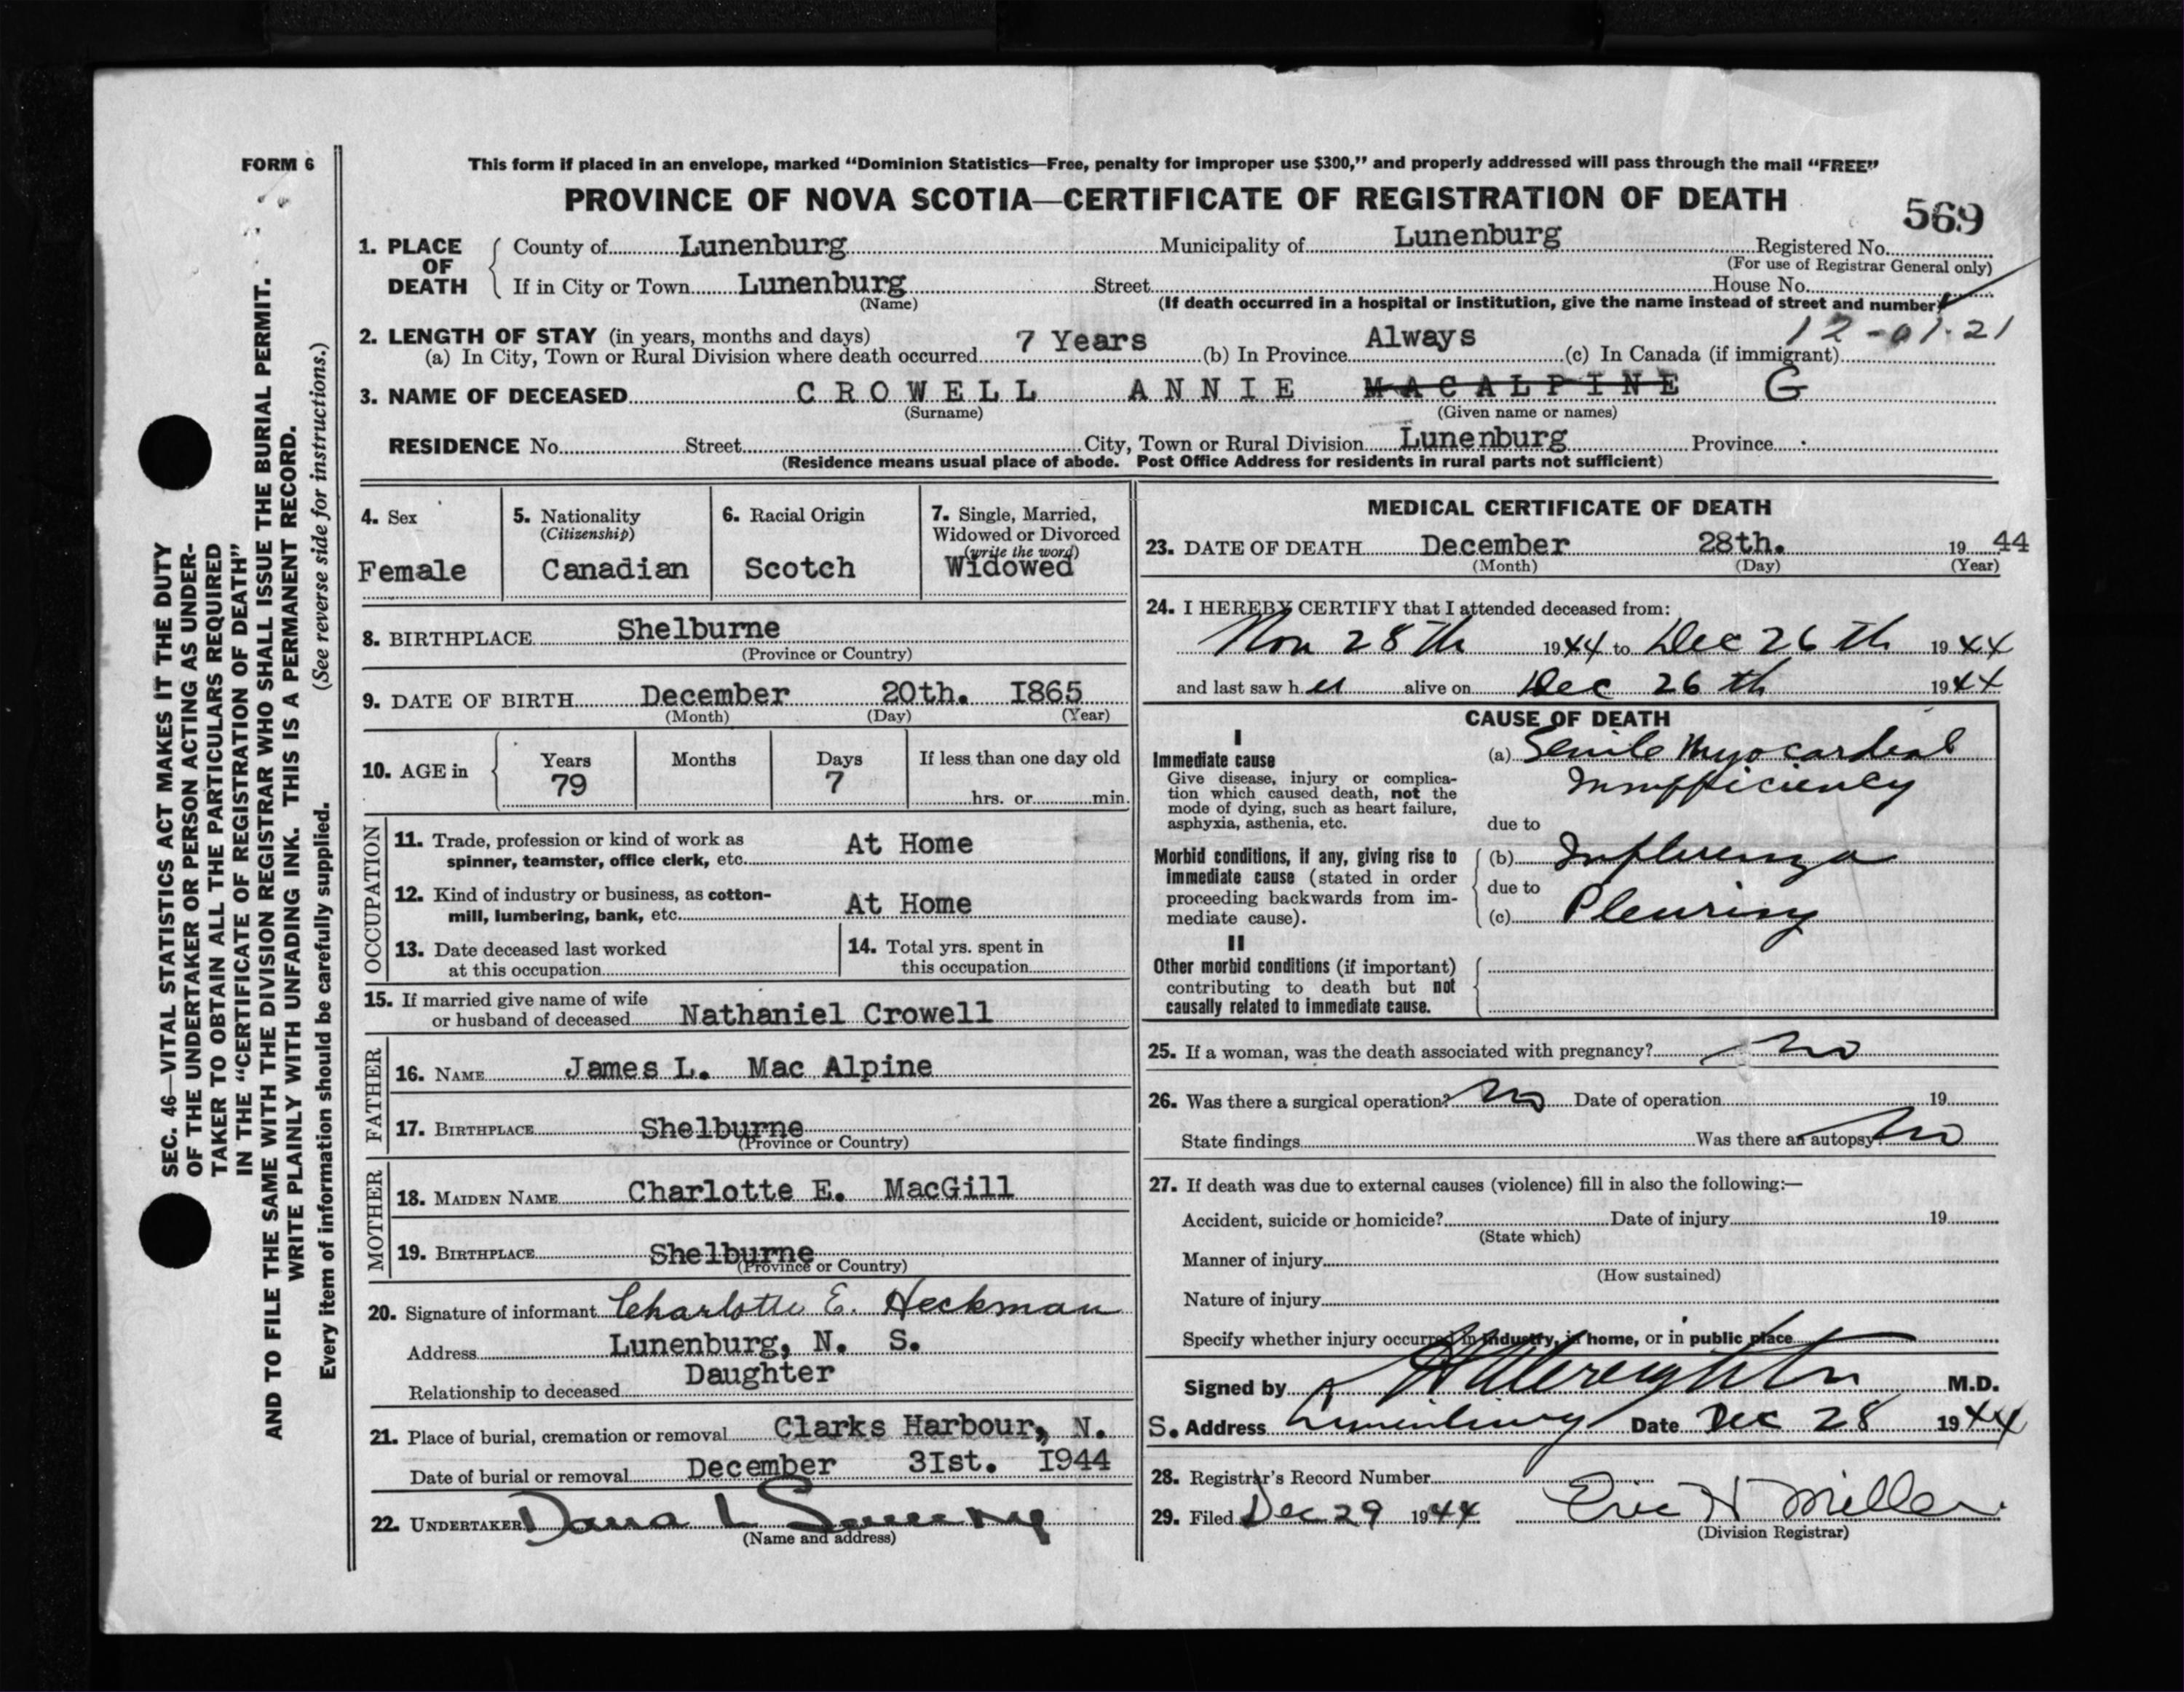 FORM 6
This form if placed in an envelope, marked “Dominion Statistics—Free, penalty for improper use $300,” and properly addressed will pass through the mail “FREE”
PROVINCE OF NOVA SCOTIA—CERTIFICATE OF REGISTRATION OF DEATH
569
1. PLACE OF DEATH
County of Lunenburg Municipality of Lunenburg Registered No.
(For use of Registrar General only)
If in City or Town Lunenburg Street House No.
(Name) (If death occurred in a hospital or institution, give the name instead of street and number)
12-01-21
2. LENGTH OF STAY (in years, months and days)
(a) In City, Town or Rural Division where death occurred 7 Years (b) In Province Always (c) In Canada (if immigrant)
3. NAME OF DECEASED CROWELL ANNIE MACALPINE G
(Surname) (Given name or names)
RESIDENCE No. Street City, Town or Rural Division Lunenburg Province
(Residence means usual place of abode. Post Office Address for residents in rural parts not sufficient)
4. Sex
Female
5. Nationality
(Citizenship)
Canadian
6. Racial Origin
Scotch
7. Single, Married,
Widowed or Divorced
(write the word)
Widowed
8. BIRTHPLACE Shelburne
(Province or Country)
9. DATE OF BIRTH December 20th. I865
(Month) (Day) (Year)
10. AGE in Years Months Days If less than one day old
79 7 hrs. or min.
OCCUPATION
11. Trade, profession or kind of work as
spinner, teamster, office clerk, etc. At Home
12. Kind of industry or business, as cotton-
mill, lumbering, bank, etc. At Home
13. Date deceased last worked
at this occupation
14. Total yrs. spent in
this occupation
15. If married give name of wife
or husband of deceased Nathaniel Crowell
FATHER
16. NAME James L. Mac Alpine
17. BIRTHPLACE Shelburne
(Province or Country)
MOTHER
18. MAIDEN NAME Charlotte E. MacGill
19. BIRTHPLACE Shelburne
(Province or Country)
20. Signature of informant Charlotte E. Heckman
Address Lunenburg, N. S.
Relationship to deceased Daughter
21. Place of burial, cremation or removal Clarks Harbour, N. S.
Date of burial or removal December 3Ist. I944
22. UNDERTAKER Dana L Sweeny
(Name and address)
MEDICAL CERTIFICATE OF DEATH
23. DATE OF DEATH December 28th. 19 44
(Month) (Day) (Year)
24. I HEREBY CERTIFY that I attended deceased from:
Nov 28th 1944 to Dec 26th 1944
and last saw her alive on Dec 26th 1944
CAUSE OF DEATH
I
Immediate cause
Give disease, injury or complica-
tion which caused death, not the
mode of dying, such as heart failure,
asphyxia, asthenia, etc.
(a) Senile Myocardial
Insufficiency
due to
Morbid conditions, if any, giving rise to
immediate cause (stated in order
proceeding backwards from im-
mediate cause).
(b) Influenza
due to
(c) Pleurisy
II
Other morbid conditions (if important)
contributing to death but not
causally related to immediate cause.
25. If a woman, was the death associated with pregnancy? No
26. Was there a surgical operation? No Date of operation 19
State findings Was there an autopsy? No
27. If death was due to external causes (violence) fill in also the following:—
Accident, suicide or homicide? Date of injury 19
(State which)
Manner of injury
(How sustained)
Nature of injury
Specify whether injury occurred in industry, in home, or in public place
Signed by Creighton M.D.
Address Lunenburg Date Dec 28 1944
28. Registrar's Record Number
29. Filed Dec 29 1944 Eric H Miller
(Division Registrar)
SEC. 46—VITAL STATISTICS ACT MAKES IT THE DUTY
OF THE UNDERTAKER OR PERSON ACTING AS UNDER-
TAKER TO OBTAIN ALL THE PARTICULARS REQUIRED
IN THE “CERTIFICATE OF REGISTRATION OF DEATH”
AND TO FILE THE SAME WITH THE DIVISION REGISTRAR WHO SHALL ISSUE THE BURIAL PERMIT.
WRITE PLAINLY WITH UNFADING INK. THIS IS A PERMANENT RECORD.
Every item of information should be carefully supplied. (See reverse side for instructions.)